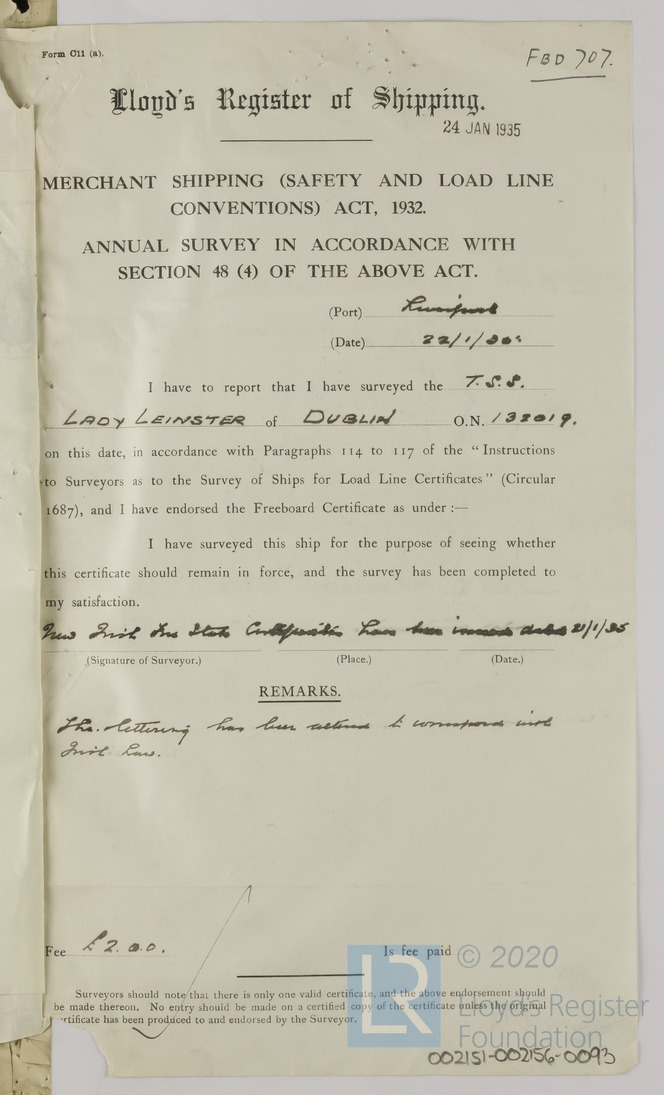 Form C11 (a).
FBD 707.
Lloyd's Register of Shipping.
24 JAN 1935
MERCHANT SHIPPING (SAFETY AND LOAD LINE
CONVENTIONS) ACT, 1932.
ANNUAL SURVEY IN ACCORDANCE WITH
SECTION 48 (4) OF THE ABOVE ACT.
(Port) Liverpool
(Date) 22/1/35
I have to report that I have surveyed the T.S.S.
LADY LEINSTER of DUBLIN O.N. 132019.
on this date, in accordance with Paragraphs 114 to 117 of the "Instructions
to Surveyors as to the Survey of Ships for Load Line Certificates" (Circular
1687), and I have endorsed the Freeboard Certificate as under :—
I have surveyed this ship for the purpose of seeing whether
this certificate should remain in force, and the survey has been completed to
my satisfaction.
New Irish Free State Certificate has been issued dated 21/1/35
(Signature of Surveyor.) (Place.) (Date.)
REMARKS.
The lettering has been altered to correspond with
Irish Law.
Fee £2.0.0. Is fee paid
Surveyors should note that there is only one valid certificate, and the above endorsement should
be made thereon. No entry should be made on a certified copy of the certificate unless the original
certificate has been produced to and endorsed by the Surveyor.
LR
© 2020
Lloyd's Register
Foundation
002151-002156-0093